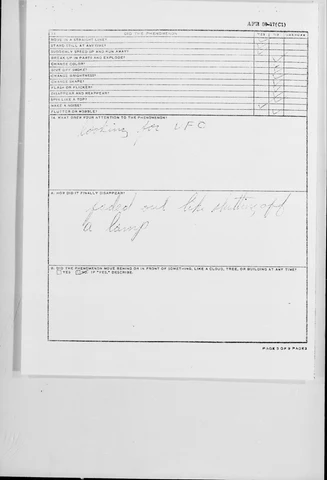 DID THE PHENOMENON YES NO UNKNOWN
MOVE IN A STRAIGHT LINE?
STAND STILL AT ANYTIME?
SUDDENLY SPEED UP AND RUN AWAY?
BREAK UP IN PARTS AND EXPLODE?
CHANGE COLOR?
GIVE OFF SMOKE?
CHANGE BRIGHTNESS?
CHANGE SHAPE?
FLASH OR FLICKER?
DISAPPEAR AND REAPPEAR?
SPIN LIKE A TOP?
MAKE A NOISE?
FLUTTER OR WOBBLE?
WHAT DREW YOUR ATTENTION TO THE PHENOMENON?
looking for LFC
HOW DID IT FINALLY DISAPPEAR?
faded out like shutting off
a lamp
DID THE PHENOMENON MOVE BEHIND OR IN FRONT OF SOMETHING, LIKE A CLOUD, TREE, OR BUILDING AT ANY TIME?
YES NO IF "YES," DESCRIBE.
PAGE 5 OF 8 PAGES